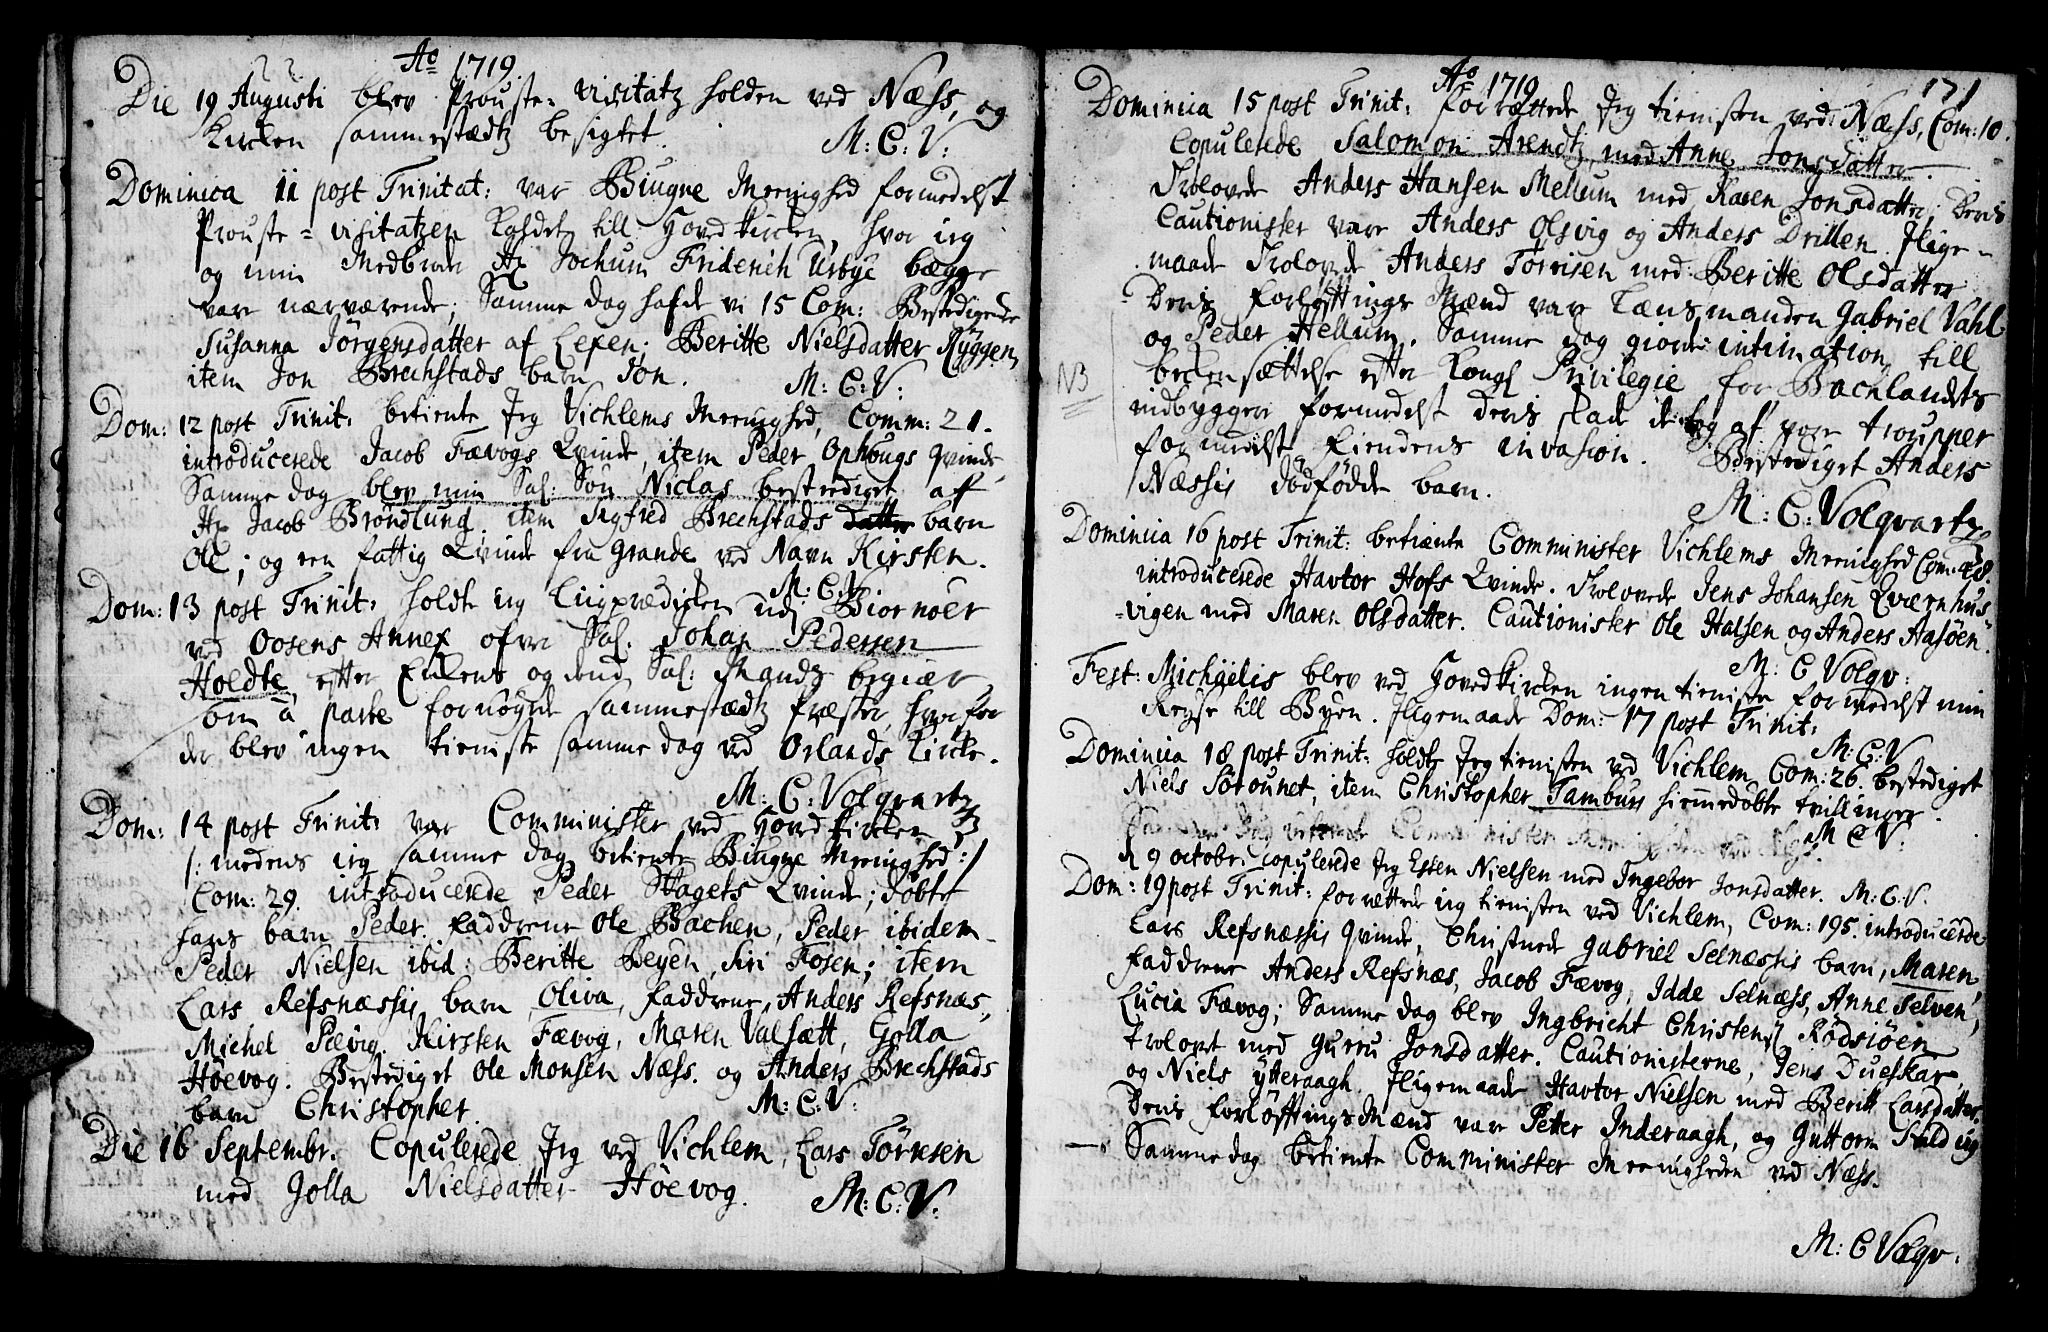 Ao 1719.
Die 19 Augusti blev Prouste-visitatz holden ved Næss, og
Kircken sammestædtz besigtet. M: C: V:
Dominica 11 post Trinitat: var Biugne Meenighed formedelst
Prouste-visitatzen Kaldet till Hovedkircken, hvor ieg
og min Medbroder Hr Jochum Friderich Ursbye begge
vare nærværende; Samme dag hafde vi 15 Com: Bestediget
Susanna Jörgensdatter af Lexen; Beritte Nielsdatter Ryggen,
item Jon Brechstads barn Jon. M: C: V:
Dom: 12 post Trinit: betiente Jeg Vichlems Meenighed, Comm: 21.
introducerede Jacob Fævogs Qvinde, item Peder Ophougs Qvinde
Samme dag blev min Sal: Sön Niclas bestediget af
Hr Jacob Bröndlund. item Sigfred Brechstads datter barn
Ole; og een fattig Qvinde fra Grande ved Navn Kirsten.
M: C: V.
Dom: 13 post Trinit: holdte ieg Liigprædicken udj Biornöer
ved Oosens Annex ofver Sal: Johan Pedersen
Holdte, efter Enkens og dend Sal: Mandz begiær
som a parte fornöyede sammestædtz Præster, hvorfor
der blev ingen tieniste samme dag ved Ørlands Kircke.
M: C: Volqvartz
Dom: 14 post Trinit: var Comminister ved Hovedkircken
/: medens ieg samme dag betiente Biugne Meenighed :/
Com: 29. introducerede Peder Hagets Qvinde; döbte
hans barn Peder. Faddrene Ole Bachen, Peder ibidem
Peder Nielsen ibid: Beritte Beyen, Siri Fosen; item
Lars Refsnæssis barn Oliva, faddrene, Anders Refsnæs,
Michel Fævig, Kirsten Fævog, Maren Valsætt, Golla
Höevog. Bestediget Ole Monsen Næss. og Anders Brechstads
barn Christopher. M: C: V:
Die 16 Septembr. Copulerede Jeg ved Vichlem, Lars Törresen
med Golla Nielsdatter Höevog. M: C: V:
Ao 1719. 171
Dominica 15 post Trinit: forrettede Jeg tienisten ved Næss, Com: 10.
Copulerede Salomon Arendtz med Anne Jonsdatter.
Trolovede Anders Hansen Mellum med Karen Jonsdatter; Deris
Cautionister vare Anders Olsvig og Anders Drillen. Ilige-
maade Trolovede Anders Törrisen med Beritte Olsdatter
Deris Forlöfftings Mænd var Lænsmanden Gabriel Vahl
og Peder Hellum. Samme dag giorde intimation till
NB
beckensættelse efter Kongl Privilegie for Bachlandets
indbyggere formedelst deris skade de tog af vore troupper
formedelst fiendens invasion. Bestediget Anders
Næssis dödfödde barn.
M: C: Volqvartz
Dominica 16 post Trinit: betiænte Comminister Vichlems Meenighed Com: 28.
introducerede Havtor Hofs Qvinde. Trolovede Jens Johansen Qværnhus-
-vigen med Maren Olsdatter. Cautionister Ole Halsen og Anders Aasöen.
M: C Volqv:
Fest: Michaelis blev ved Hovedkircken ingen tieniste formedelst min
Reyse till Byen. Iligemaade Dom: 17 post Trinit:
M: C: V
Dominica 18 post Trinit: holdte Jeg tienisten ved Vichlem, Com: 26. bestediget
Niels Sörounet, item Christopher Tamburs hiemmedöbte tvillinger.
M C V:
d 9 octobr. copulerede Jeg Essen Nielsen med Ingebor Jonsdatter. M: C: V.
Dom: 19 post Trinit: forrættede ieg tienisten ved Vichlem, Com: 195. introducerde
Lars Refsnæssis Qvinde, Christnede Gabriel Selnæssis barn, Maren,
Faddrene Anders Refsnæs, Jacob Fævog, Idde Selnæss, Anne Selven,
Lucia Fævog; Samme dag blev Ingbricht Christens. Rödsiöen
Trolovet med Gurru Jonsdatter. Cautionisterne, Jens Dueskar,
og Niels Ytteraagh. Iligemaade Havtor Nielsen med Berit Larsdatter.
Deris Forlöfftings Mænd vare Petter Inderaagh, og Guttorm
Samme dag betiente Comminister Meenigheden ved Næss.
M: C Volqv: